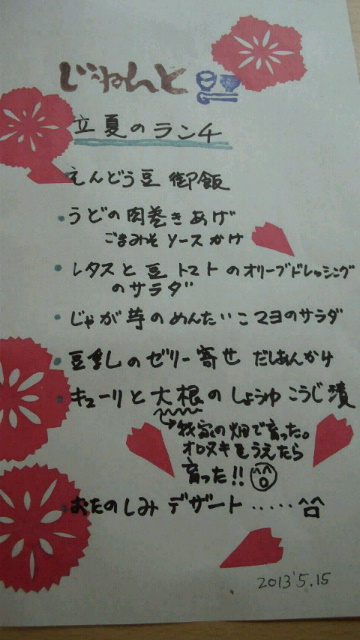 じねんと
立夏のランチ
えんどう豆御飯
・うどの肉巻きあげ
ごまみそソースかけ
・レタスと豆トマトのオリーブドレッシング
のサラダ
・じゃが芋のめんたいこマヨのサラダ
・豆ましのゼリー寄せ だしあんかけ
・キューリと大根のしょうゆこうじ漬
我家の畑で育った。
オロヌキをうえたら
育った!!
・おたのしみデザート‥‥‥
2013'5.15